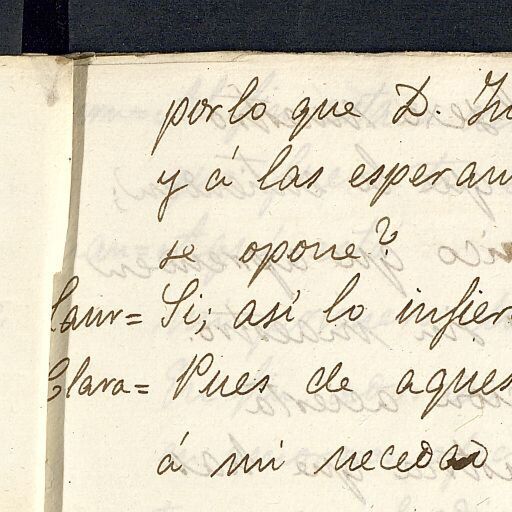 por lo que D. Ju
y á las esperan
se opone?
Laur= Si; asi lo infier
Clara= Pues de aques
á mi necedad